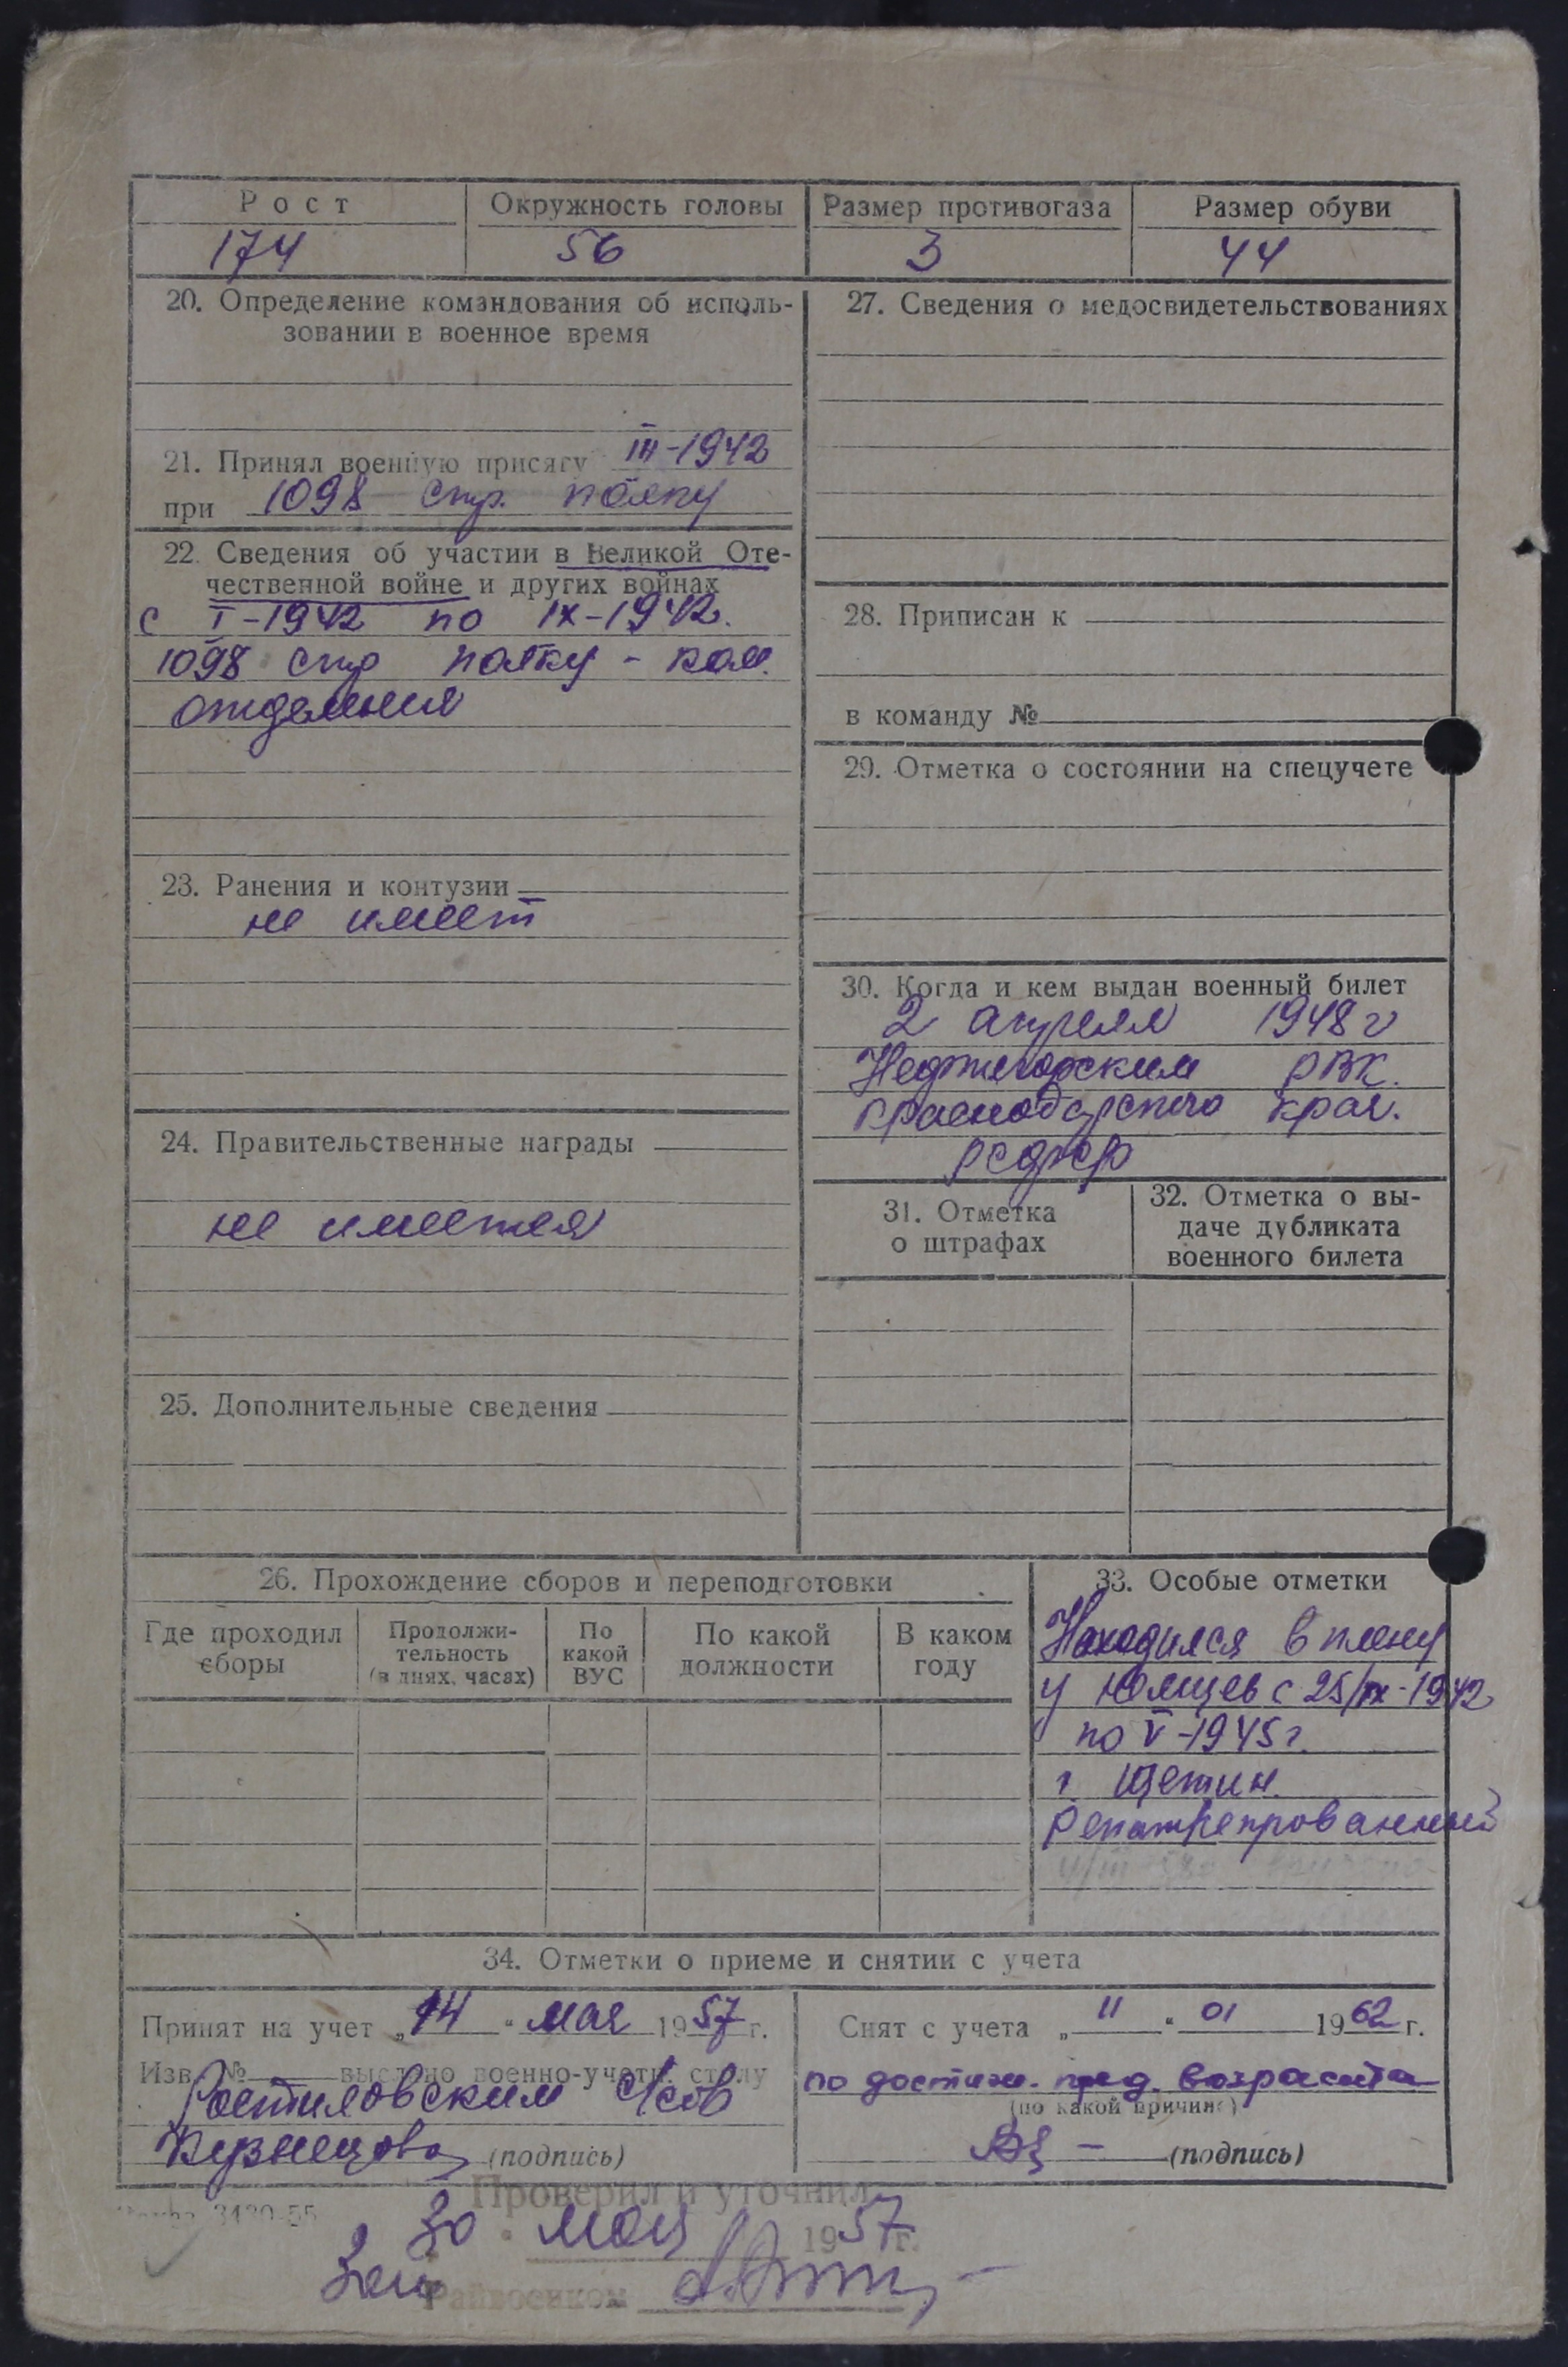 Рост Окружность головы Размер противогаза Размер обуви
174 56 3 44
20. Определение командования об исполь-
зовании в военное время
21. Принял военную присягу III-1942
при 1098 стр. полку
22. Сведения об участии в Великой Оте-
чественной войне и других войнах
с I-1942 по IX-1942.
1098 стр полку - ком.
отделения
23. Ранения и контузии
не имеет
24. Правительственные награды
не имеется
25. Дополнительные сведения
27. Сведения о медосвидетельствованиях
28. Приписан к
в команду №
29. Отметка о состоянии на спецучете
30. Когда и кем выдан военный билет
2 апреля 1948 г
Нефтегорским РВК.
Краснодарского края.
РСФСР
31. Отметка
о штрафах
32. Отметка о вы-
даче дубликата
военного билета
26. Прохождение сборов и переподготовки
Где проходил
сборы
Продолжи-
тельность
(в днях, часах)
По
какой
ВУС
По какой
должности
В каком
году
33. Особые отметки
Находился в плену
у немцев с 25/IX-1942
по V-1945 г.
г. Щетин.
Репатреированный
34. Отметки о приеме и снятии с учета
Принят на учет „14" мая 1957 г.
Изв. № выслано военно-учетн. столу
Ростиловским с/сов
Кузнецова (подпись)
Снят с учета „11" 01 1962 г.
по достиж. пред. возраста
(по какой причине)
(подпись)
3420-55
Проверил и уточнил
30 мая 1957 г.
Райвоенком